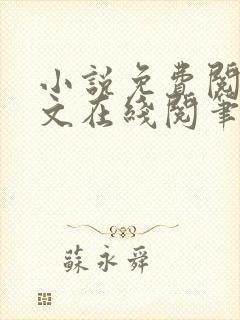 小說免費閱
文在綫閱筆
蘇永舜